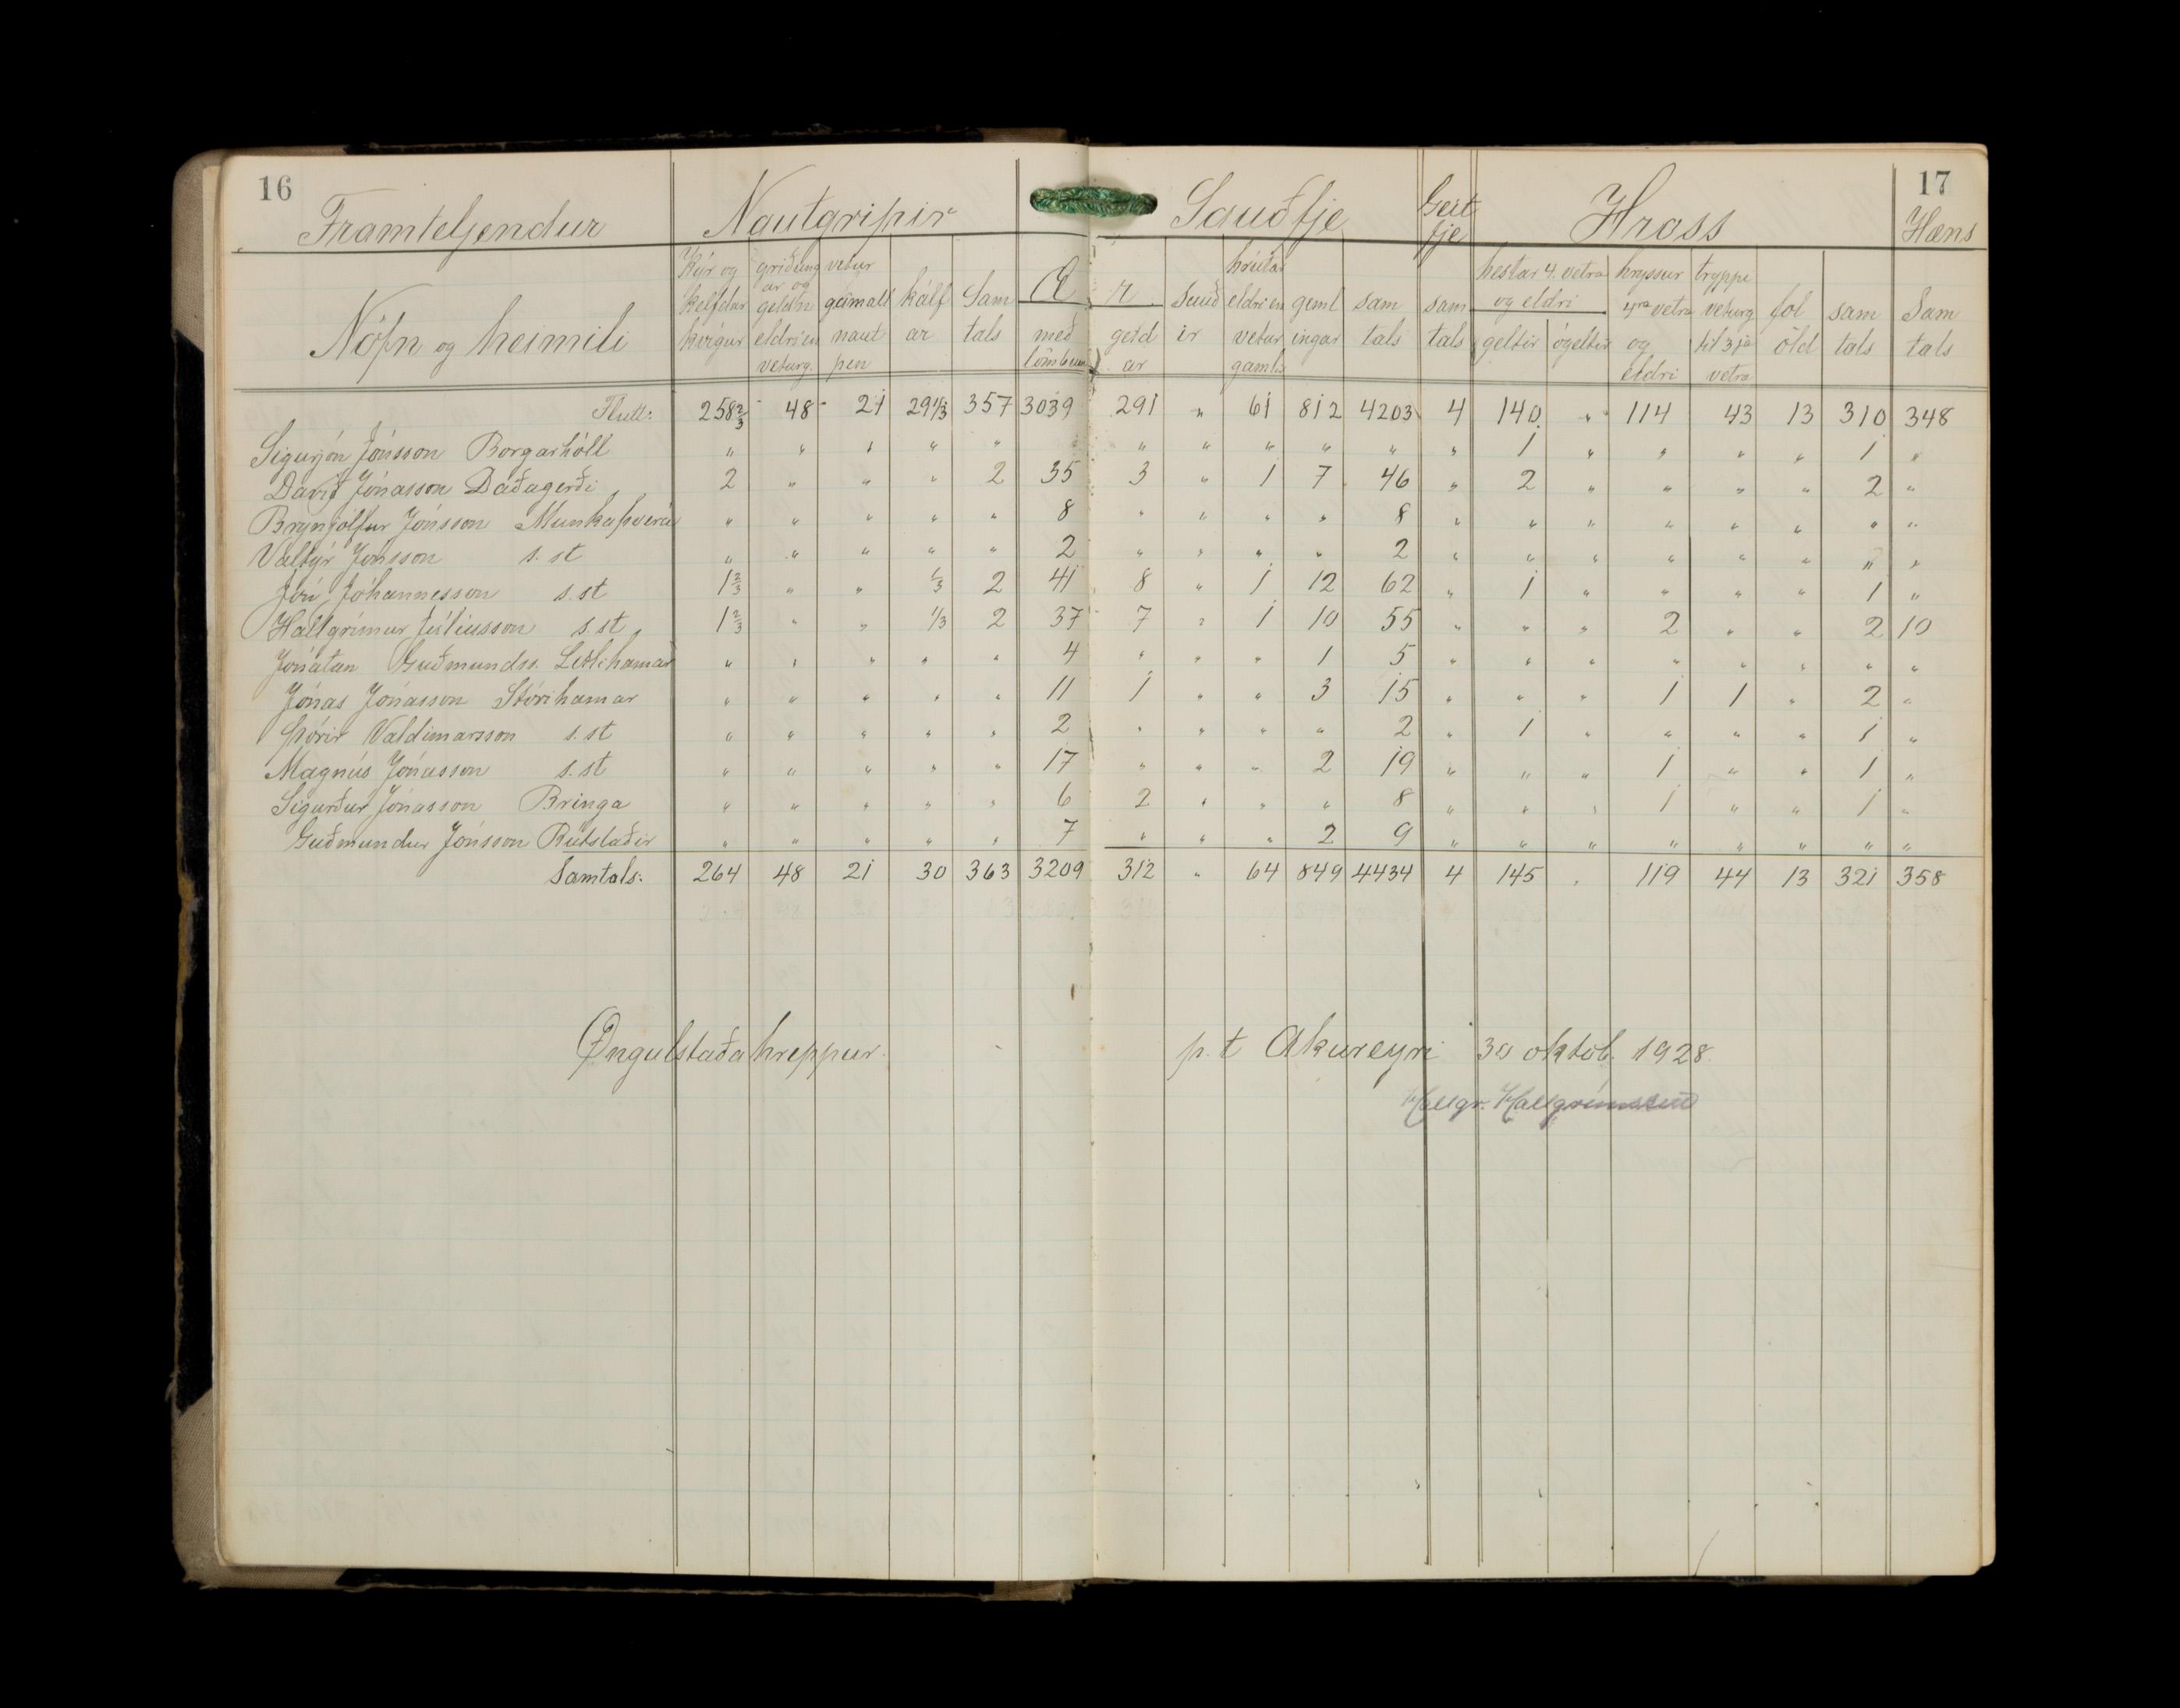 16 17
Framteljendur Nautgripir Sauðfje Geit fje Hross Hæns
Nöfn og heimili Kýr og kelfdar kvígur griðung ar og geldn eldri en veturg. vetur gamalt naut pen kálf ar Sam tals Æ með lömbum r geld ar Sauð ir hrútar eldri en vetur gamlir geml ingar sam tals sam tals hestar 4. vetra og eldri geltir ógeltir hryssur 4ra vetra og eldri tryppi veturg til 3ja vetra fol öld sam tals Sam tals
Flutt: 258 2/3 48 21 29 1/3 357 3039 291 „ 61 812 4203 4 140 „ 114 43 13 310 348
Sigurjón Jónsson Borgarhóll „ „ „ „ „ „ „ „ „ „ „ 1 „ „ „ „ 1 „
Davíð Jónasson Daðagerði 2 „ „ „ 2 35 3 „ 1 7 46 „ 2 „ „ „ „ 2 „
Brynjólfur Jónsson Munkaþverá „ „ „ „ „ 8 „ „ „ „ 8 „ „ „ „ „ „ „ „
Valtýr Jónsson s. st „ „ „ „ „ 2 „ „ „ „ 2 „ „ „ „ „ „ „ „
Jón Jóhannesson s. st 1 2/3 „ „ 1/3 2 41 8 „ 1 12 62 „ 1 „ „ „ „ 1 „
Hallgrímur Júlíusson s. st 1 2/3 „ „ 1/3 2 37 7 „ 1 10 55 „ „ „ 2 „ „ 2 10
Jónatan Guðmundss. Litlihamar „ „ „ „ „ 4 „ „ „ 1 5 „ „ „ „ „ „ „ „
Jónas Jónasson Stórihamar „ „ „ „ „ 11 1 „ „ 3 15 „ „ „ 1 1 „ 2 „
Þórir Valdimarsson s. st „ „ „ „ „ 2 „ „ „ „ 2 „ 1 „ „ „ „ 1 „
Magnús Jónasson s. st „ „ „ „ „ 17 „ „ „ 2 19 „ „ „ 1 „ „ 1 „
Sigurður Jónasson Bringa „ „ „ „ „ 6 2 „ „ „ 8 „ „ „ 1 „ „ 1 „
Guðmundur Jónsson Rútstaðir „ „ „ „ „ 7 „ „ „ 2 9 „ „ „ „ „ „ „ „
Samtals: 264 48 21 30 363 3209 312 „ 64 849 4434 4 145 „ 119 44 13 321 358
Öngulstaðahreppur. p. t Akureyri 30 októb. 1928.
Hallgr. Hallgrímsson